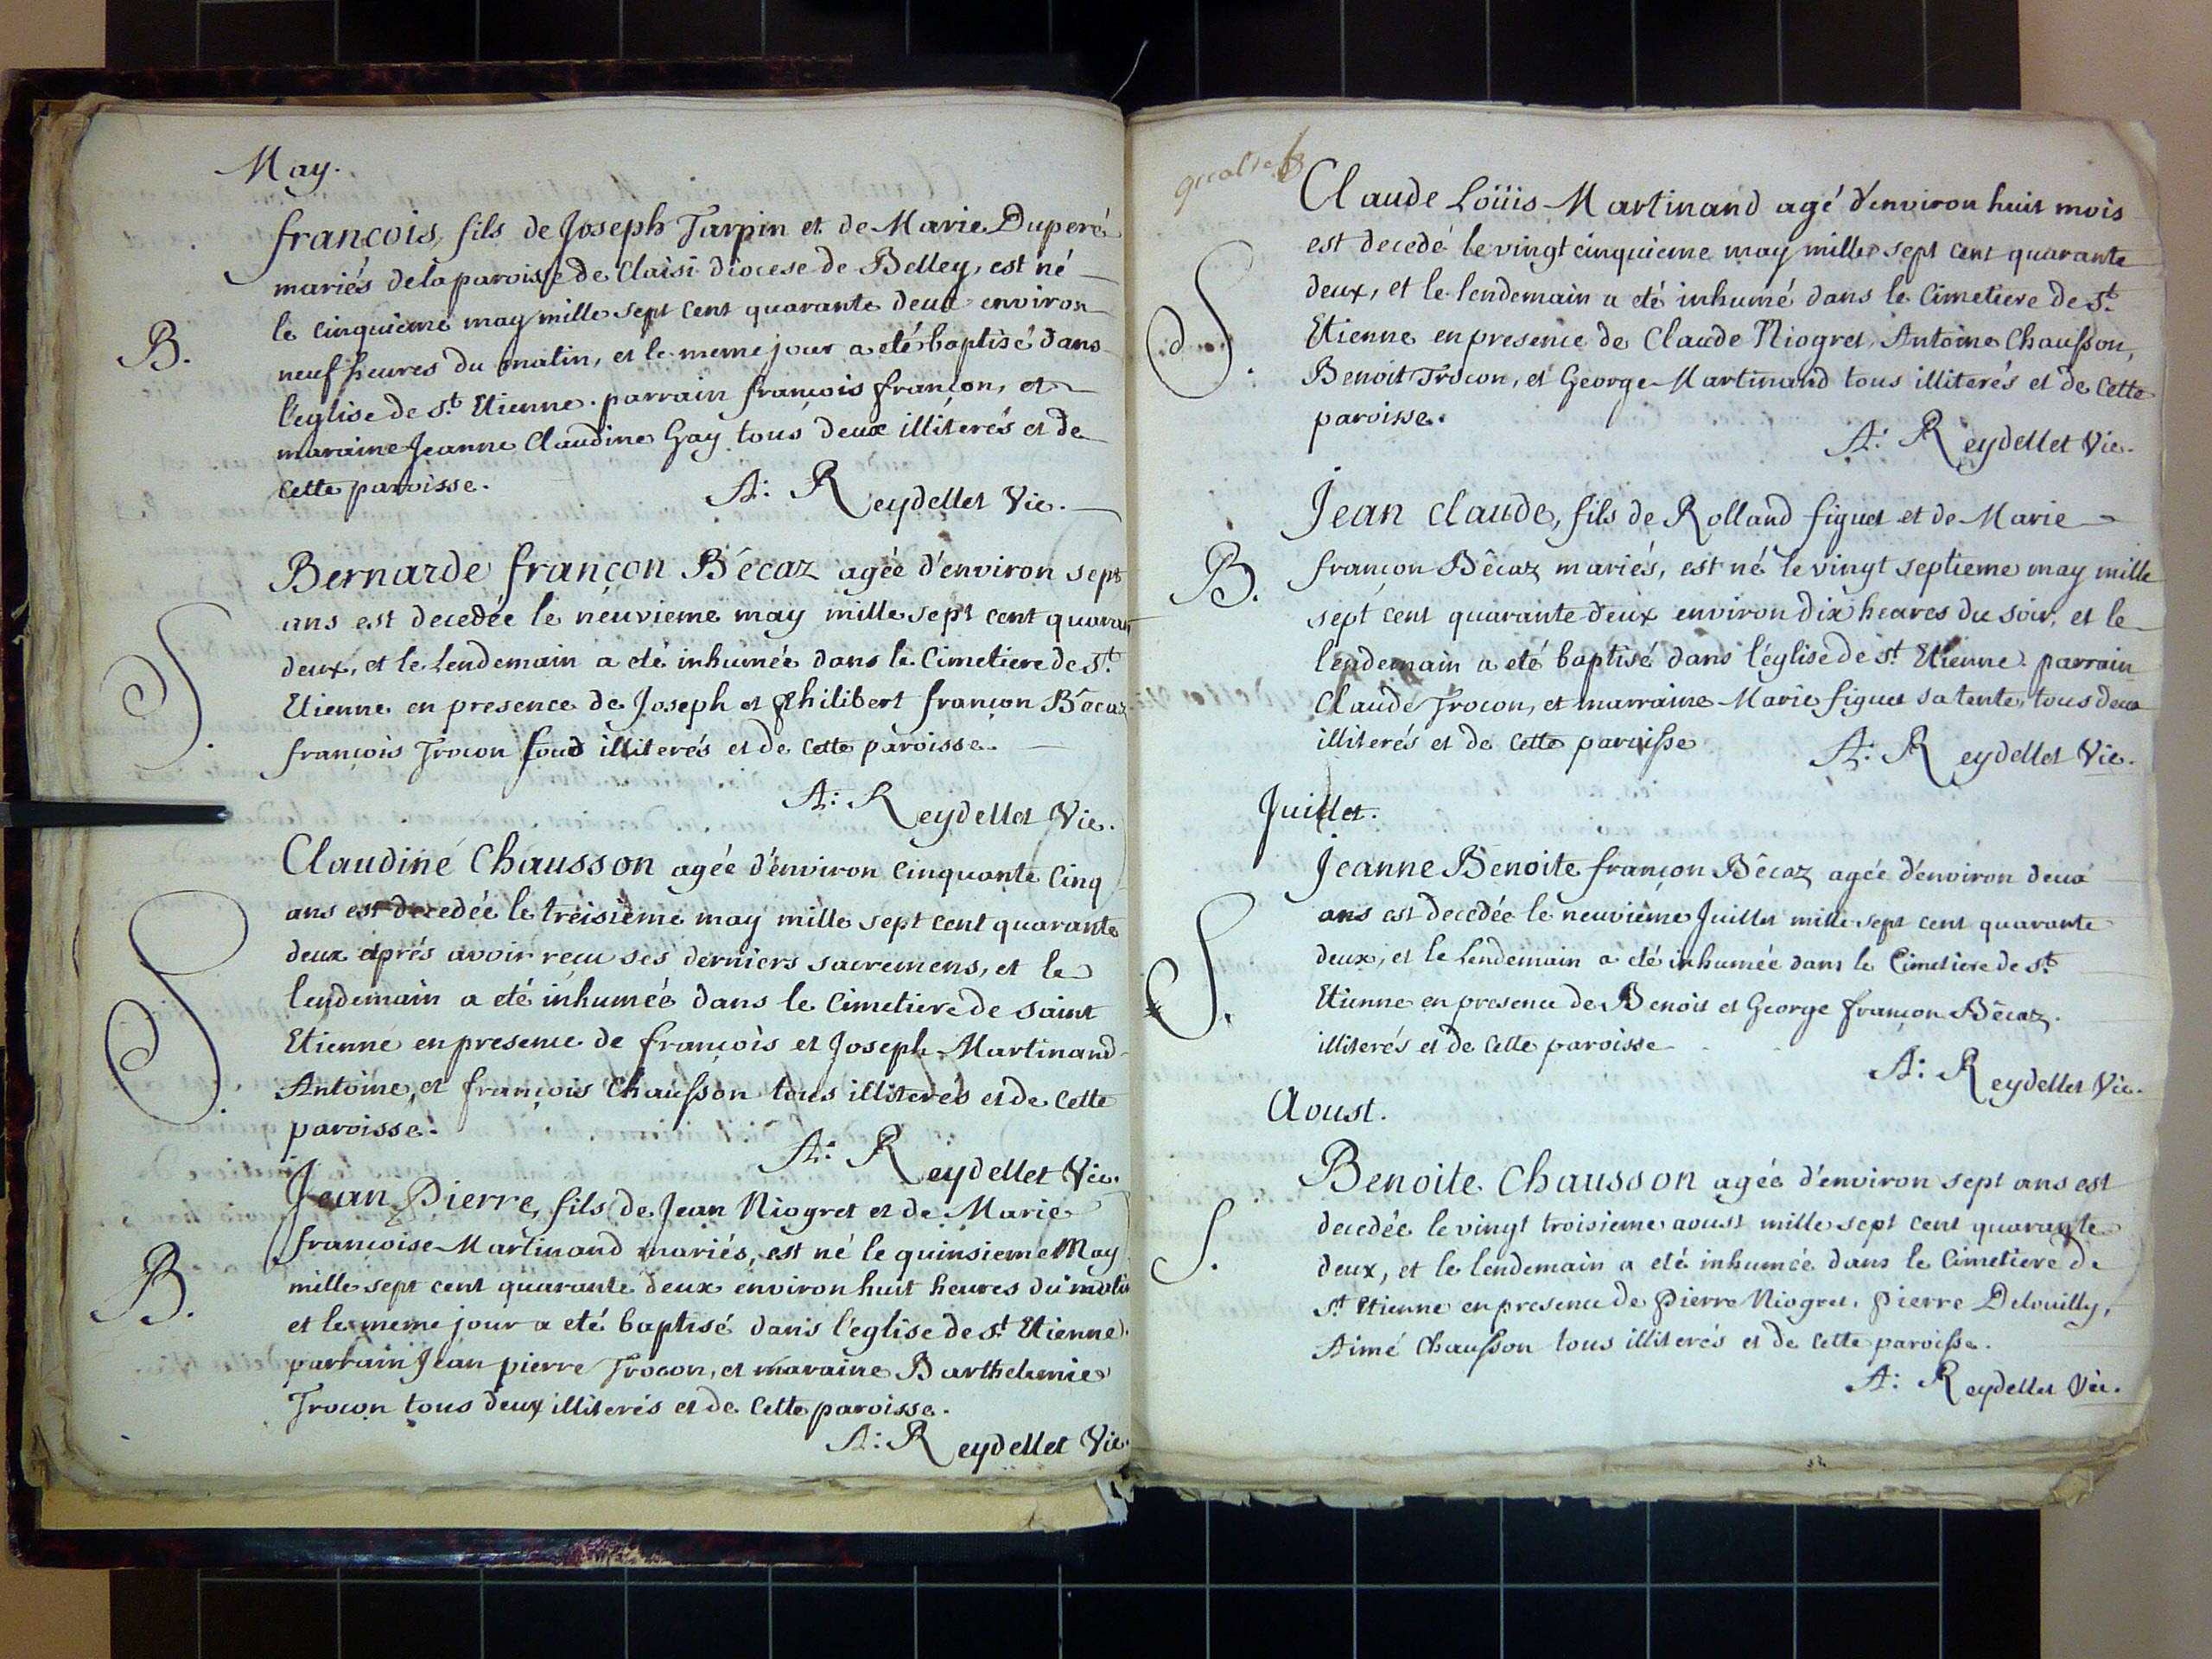 May.
françois, fils de Joseph Tarpin et de Marie Duperé
mariés de la paroisse de Claisi diocese de Belley, est né
le cinquieme may mille sept cent quarante deux environ
B.
neuf heures du matin, et le meme jour a eté baptisé dans
l'eglise de St. Etienne. parrain françois françon, et
maraine Jeanne Claudine Gay tous deux illiterés et de
cette paroisse.
A: Reydellet Vic.
Bernarde françon Bêcaz agée d'environ sept
ans est decedée le neuvieme may mille sept cent quaran
deux, et le Lendemain a eté inhumée dans le Cimetiere de St.
S.
Etienne en presence de Joseph et Philibert françon Bêcaz
françois Trocon tous illiterés et de cette paroisse.
A: Reydellet Vic.
Claudine Chausson agée d'environ cinquante cinq
ans est decedée le treisieme may mille sept cent quarante
deux aprés avoir reçu ses derniers sacremens, et le
lendemain a eté inhumée dans le Cimetiere de saint
S.
Etienne en presence de françois et Joseph Martinand
Antoine, et françois Chausson tous illiterés et de cette
paroisse.
A: Reydellet Vic.
Jean Pierre, fils de Jean Niogret et de Marie
françoise Martinand mariés, est né le quinsieme May
B.
mille sept cent quarante deux environ huit heures du matin
et le meme jour a eté baptisé dans l'eglise de St. Etienne.
parrain Jean pierre Trocon, et maraine Barthelemie
Trocon tous deux illiterés et de cette paroisse.
A: Reydellet Vic.
Claude Loüis Martinand agé d'environ huit mois
est decedé le vingt cinquieme may mille sept cent quarante
deux, et le lendemain a eté inhumé dans le Cimetiere de St.
S.
Etienne en presence de Claude Niogret, Antoine Chausson,
Benoit Trocon, et George Martinand tous illiterés et de cette
paroisse.
A: Reydellet Vic.
Jean claude, fils de Rolland figuet et de Marie
B.
françon Bêcaz mariés, est né le vingt septieme may mille
sept cent quarante deux environ dix heures du soir, et le
lendemain a eté baptisé dans l'église de St. Etienne. parrain
Claude Trocon, et marraine Marie figuet sa tente, tous deux
illiterés et de cette paroisse
A: Reydellet Vic.
Juillet.
Jeanne Benoite françon Bêcaz agée d'environ deux
ans est decedée le neuvieme Juillet mille sept cent quarante
deux, et le Lendemain a eté inhumée dans le Cimetiere de St.
S.
Etienne en presence de Benoit et George françon Bêcaz.
illiterés et de cette paroisse
A: Reydellet Vic.
Aoust.
Benoite Chausson agée d'environ sept ans est
decedée le vingt troisieme aoust mille sept cent quarante
S.
deux, et le lendemain a eté inhumée dans le Cimetiere de
St. Etienne en presence de Pierre Niogret, Pierre Delouilly,
Aimé Chausson tous illiterés et de cette paroisse.
A: Reydellet Vic.